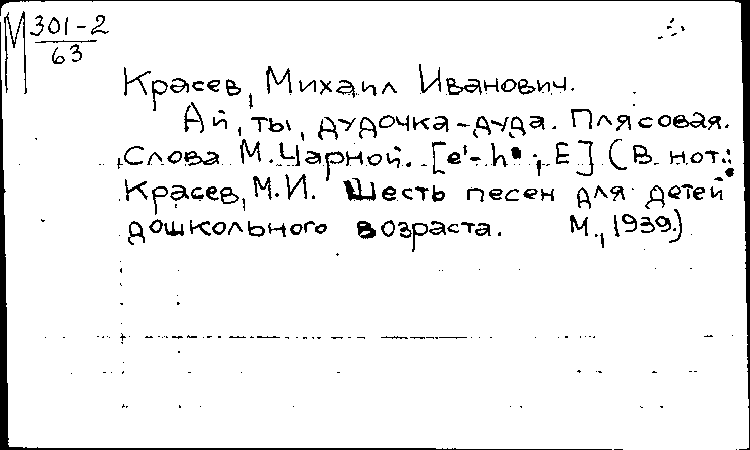 М 301-2
63
Красев, Михаил Иванович.
Ай, ты, дудочка-дуда. Плясовая.
Слова М. Чарной. [e'-h; E] (В нот.:
Красев, М.И. Шесть песен для детей
дошкольного возраста. М., 1939.)